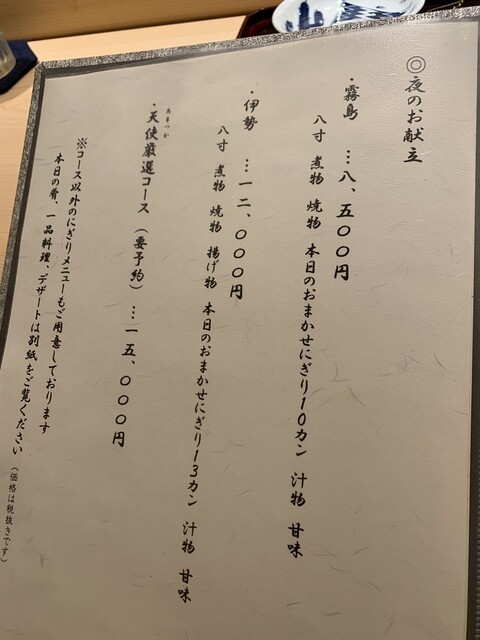 ◎夜のお献立
・霧島 …八、五〇〇円
八寸 煮物 焼物 本日のおまかせにぎり10カン 汁物 甘味
・伊勢 …一二、〇〇〇円
八寸 煮物 焼物 揚げ物 本日のおまかせにぎり13カン 汁物 甘味
あまつか
・天使厳選コース(要予約)…一五、〇〇〇円
※コース以外のにぎりメニューもご用意しております
本日の肴、一品料理、デザートは別紙をご覧ください(価格は税抜きです)